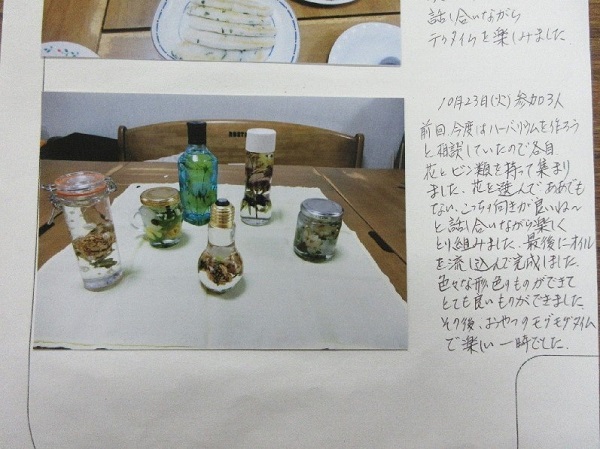 話し合いながら
ティータイムを楽しみました
10月23日(火)参加3人
前回、今度はハーバリウムを作ろう
と相談していたので各自
花とビン類を持って集まり
ました。花を選んで ああでも
ない、こっち向きが良いね〜
と話し合いながら楽しく
とり組みました。最後にオイル
を流し込んで完成しました。
色々な形、色のものができて
とても良いものができました。
その後、おやつのモグモグタイム
で楽しい一時でした。